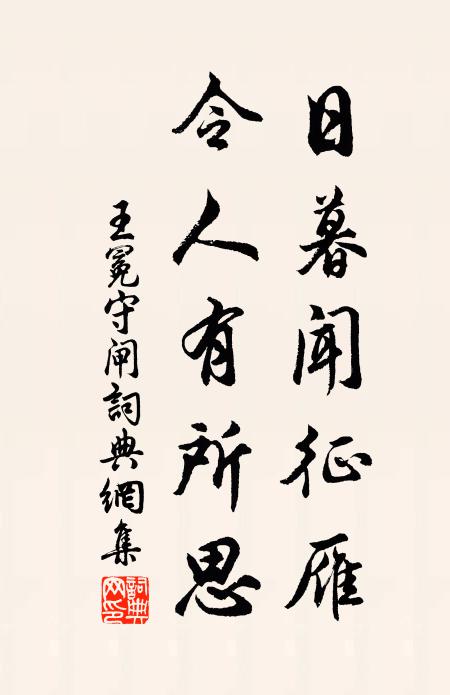 日暮聞征雁
令人有所思
王冕守闸詞典網集
詞典網印